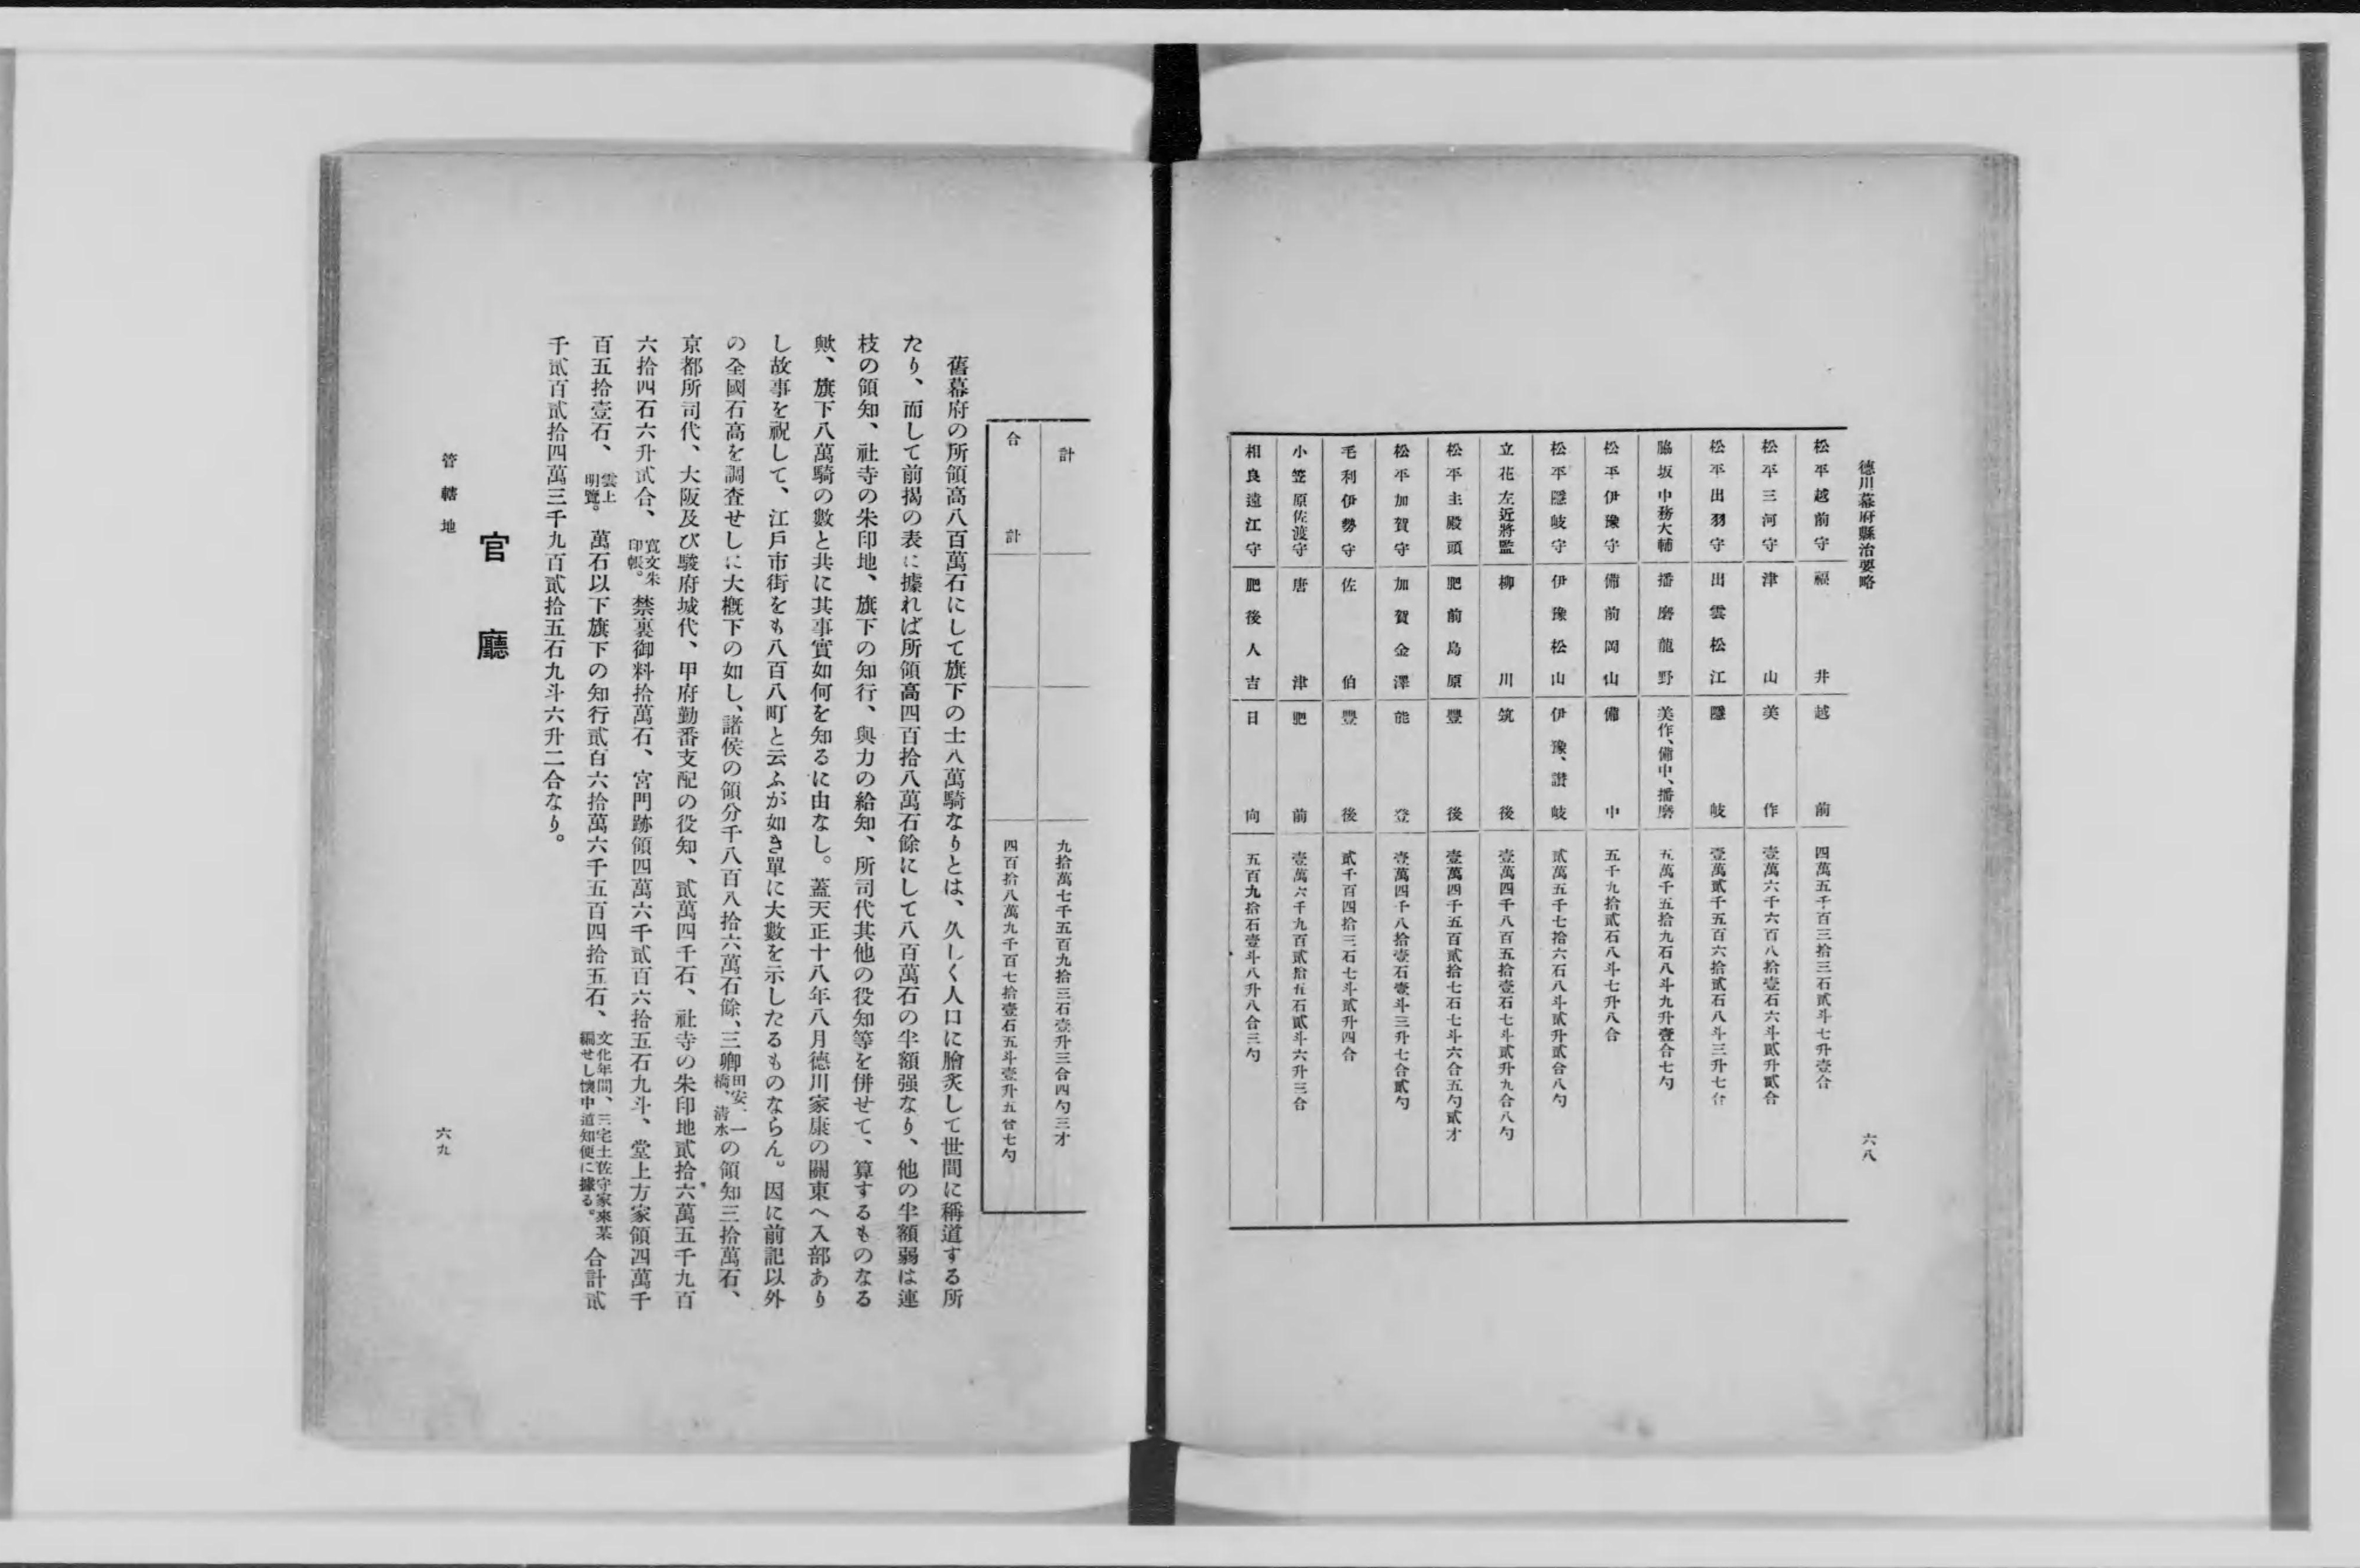 德川幕府縣治要略
六八
松平越前守 福井 越前 四萬五千百三拾三石貳斗七升壹合
松平三河守 津山 美作 壹萬六千六百八拾壹石六斗貳升貳合
松平出羽守 出雲松江 隱岐 壹萬貳千五百六拾貳石八斗三升七合
脇坂中務大輔 播磨龍野 美作、備中、播磨 五萬千五拾九石八斗九升壹合七勺
松平伊豫守 備前岡山 備中 五千九拾貳石八斗七升八合
松平隱岐守 伊豫松山 伊豫、讃岐 貳萬五千七拾六石八斗貳升貳合八勺
立花左近將監 柳川 筑後 壹萬四千八百五拾壹石七斗貳升九合八勺
松平主殿頭 肥前島原 豐後 壹萬四千五百貳拾七石七斗六合五勺貳才
松平加賀守 加賀金澤 能登 壹萬四千八拾壹石壹斗三升七合貳勺
毛利伊勢守 佐伯 豐後 貳千百四拾三石七斗貳升四合
小笠原佐渡守 唐津 肥前 壹萬六千九百貳拾五石貳斗六升三合
相良遠江守 肥後人吉 日向 五百九拾石壹斗八升八合三勺
計 九拾萬七千五百九拾三石壹升三合四勺三才
合計 四百拾八萬九千百七拾壹石五斗壹升五合七勺
舊幕府の所領高八百萬石にして旗下の士八萬騎なりとは、久しく人口に膾炙して世間に稱道する所
たり、而して前揭の表に據れば所領高四百拾八萬石餘にして八百萬石の半額强なり、他の半額弱は連
枝の領知、社寺の朱印地、旗下の知行、與力の給知、所司代其他の役知等を併せて、算するものなる
歟、旗下八萬騎の數と共に其事實如何を知るに由なし。蓋天正十八年八月德川家康の關東へ入部あり
し故事を祝して、江戶市街をも八百八町と云ふが如き單に大數を示したるものならん。因に前記以外
の全國石高を調査せしに大槪下の如し、諸侯の領分千八百八拾六萬石餘、三卿田安、一橋、淸水の領知三拾萬石、
京都所司代、大阪及び駿府城代、甲府勤番支配の役知、貳萬四千石、社寺の朱印地貳拾六萬五千九百
六拾四石六升貳合、寬文朱印帳。禁裏御料拾萬石、宮門跡領四萬六千貳百六拾五石九斗、堂上方家領四萬千
百五拾壹石、雲上明覽。萬石以下旗下の知行貳百六拾萬六千五百四拾五石、文化年間、三宅土佐守家來某編せし懷中道知便に據る。合計貳
千貳百貳拾四萬三千九百貳拾五石九斗六升二合なり。
官廳
管轄地
六九